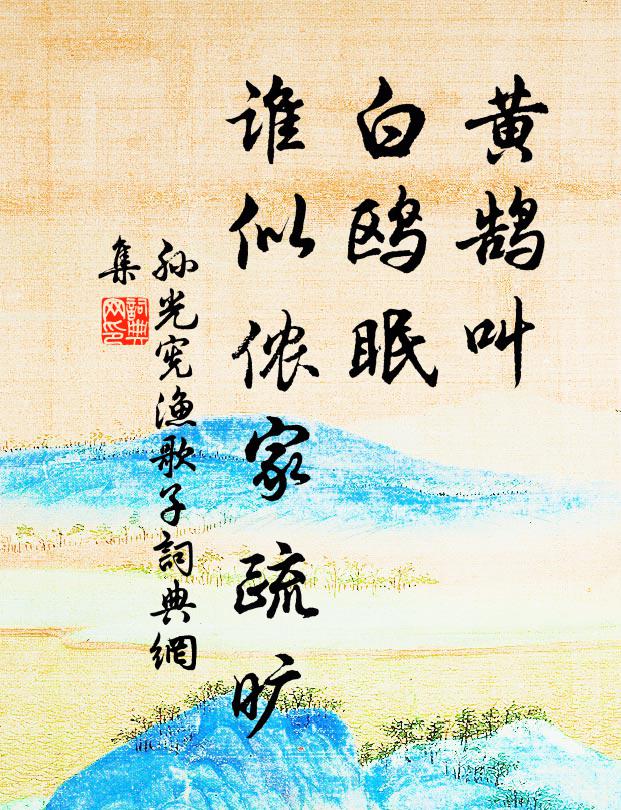 黄鹄叫
白鸥眠
谁似侬家疏旷
孙光宪渔歌子詞典網
集
詞典网印